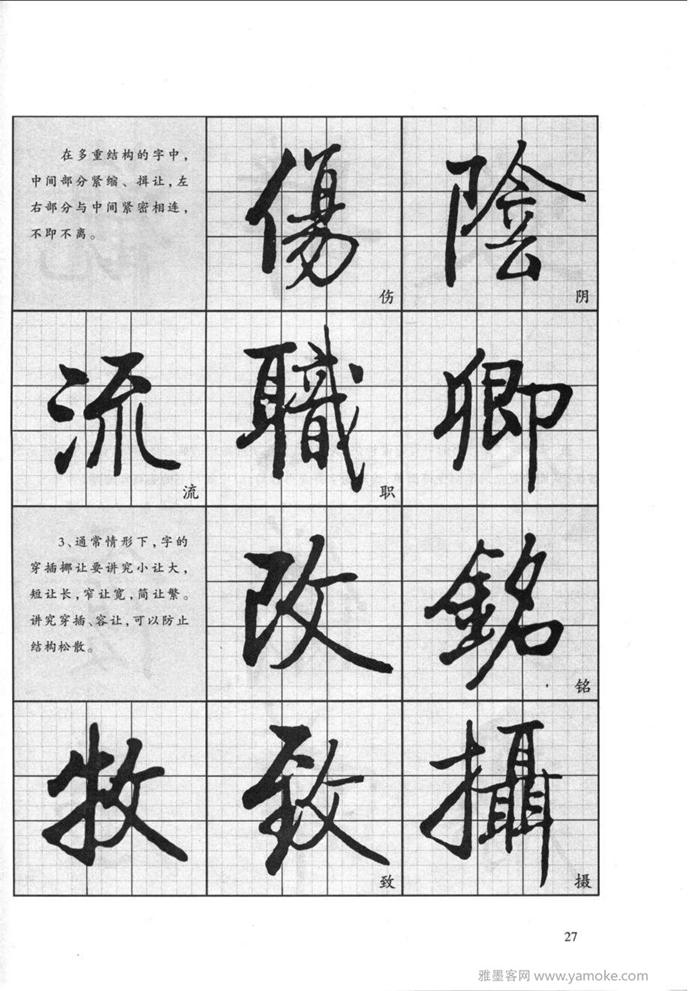 在多重结构的字中，
中间部分紧缩、揖让，左
右部分与中间紧密相连，
不即不离。
傷
伤
陰
阴
流
流
職
职
卿
3、通常情形下，字的
穿插挪让要讲究小让大，
短让长，窄让宽，简让繁。
讲究穿插、容让，可以防止
结构松散。
改
銘
铭
牧
致
致
攝
摄
27
雅墨客网 www.yamoke.com